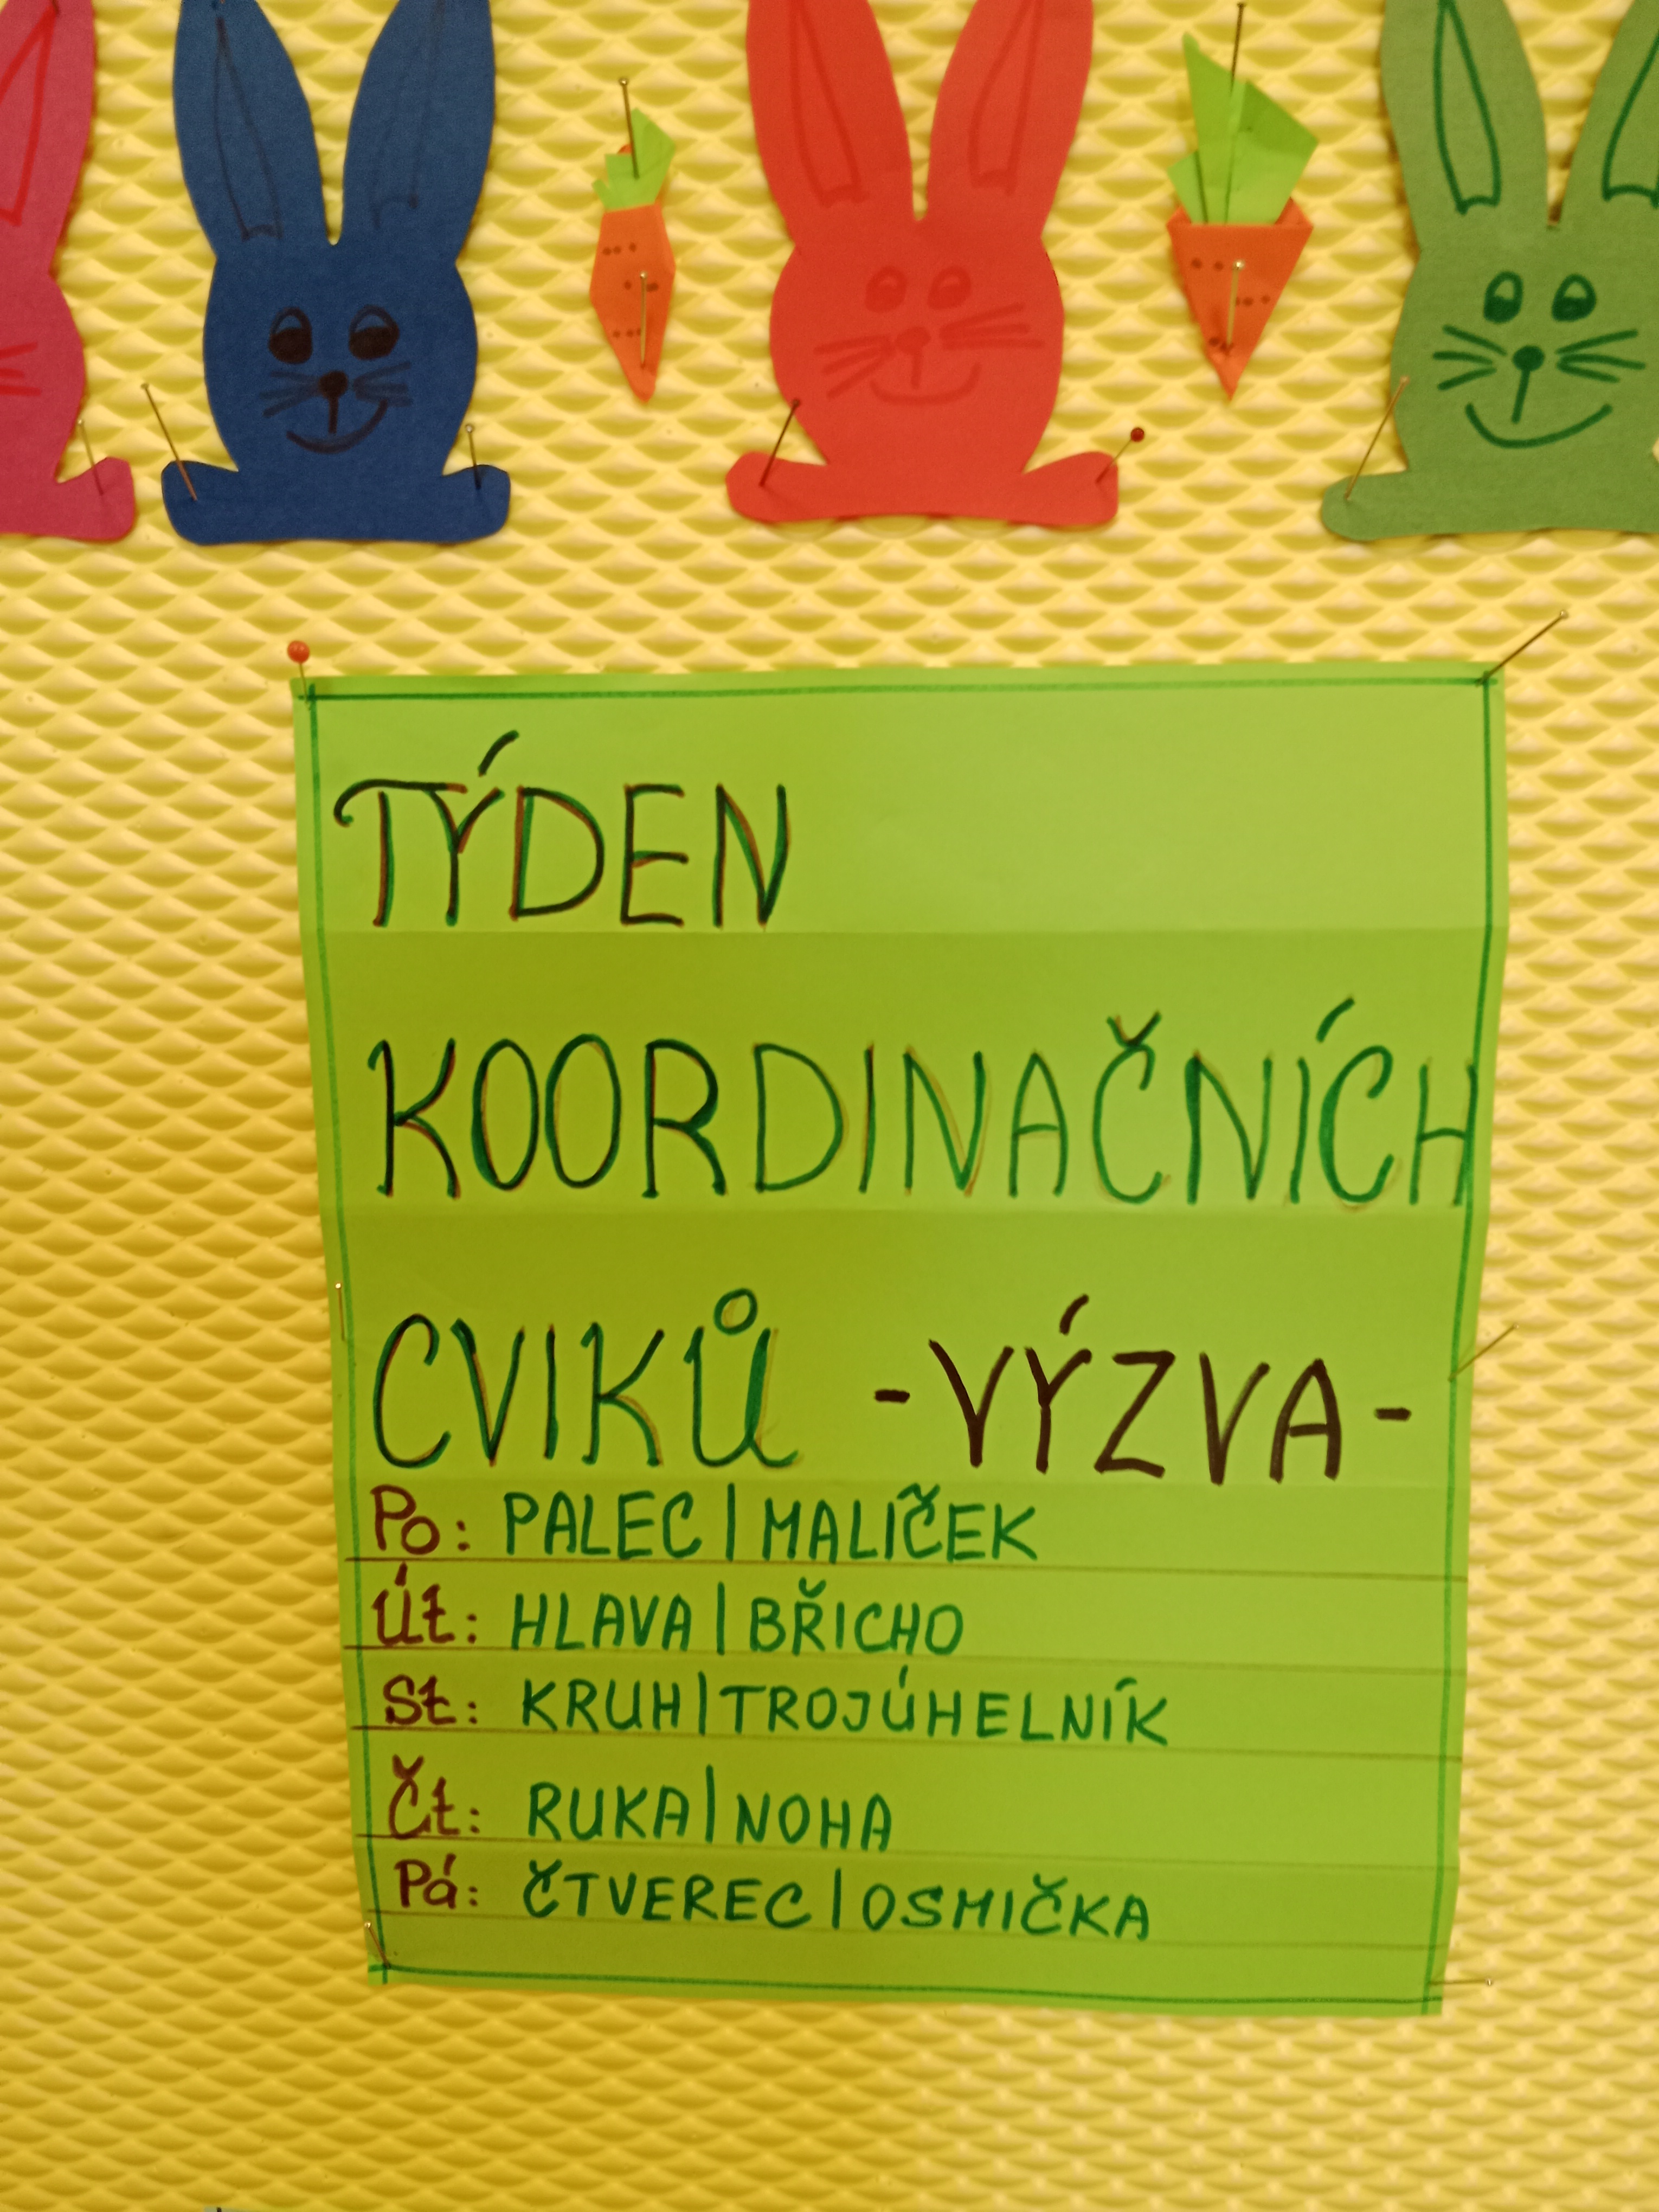 TÝDEN
KOORDINAČNÍCH
CVIKŮ -VÝZVA-
Po: PALEC|MALÍČEK
Út: HLAVA|BŘICHO
St: KRUH|TROJÚHELNÍK
Čt: RUKA|NOHA
Pá: ČTVEREC|OSMIČKA